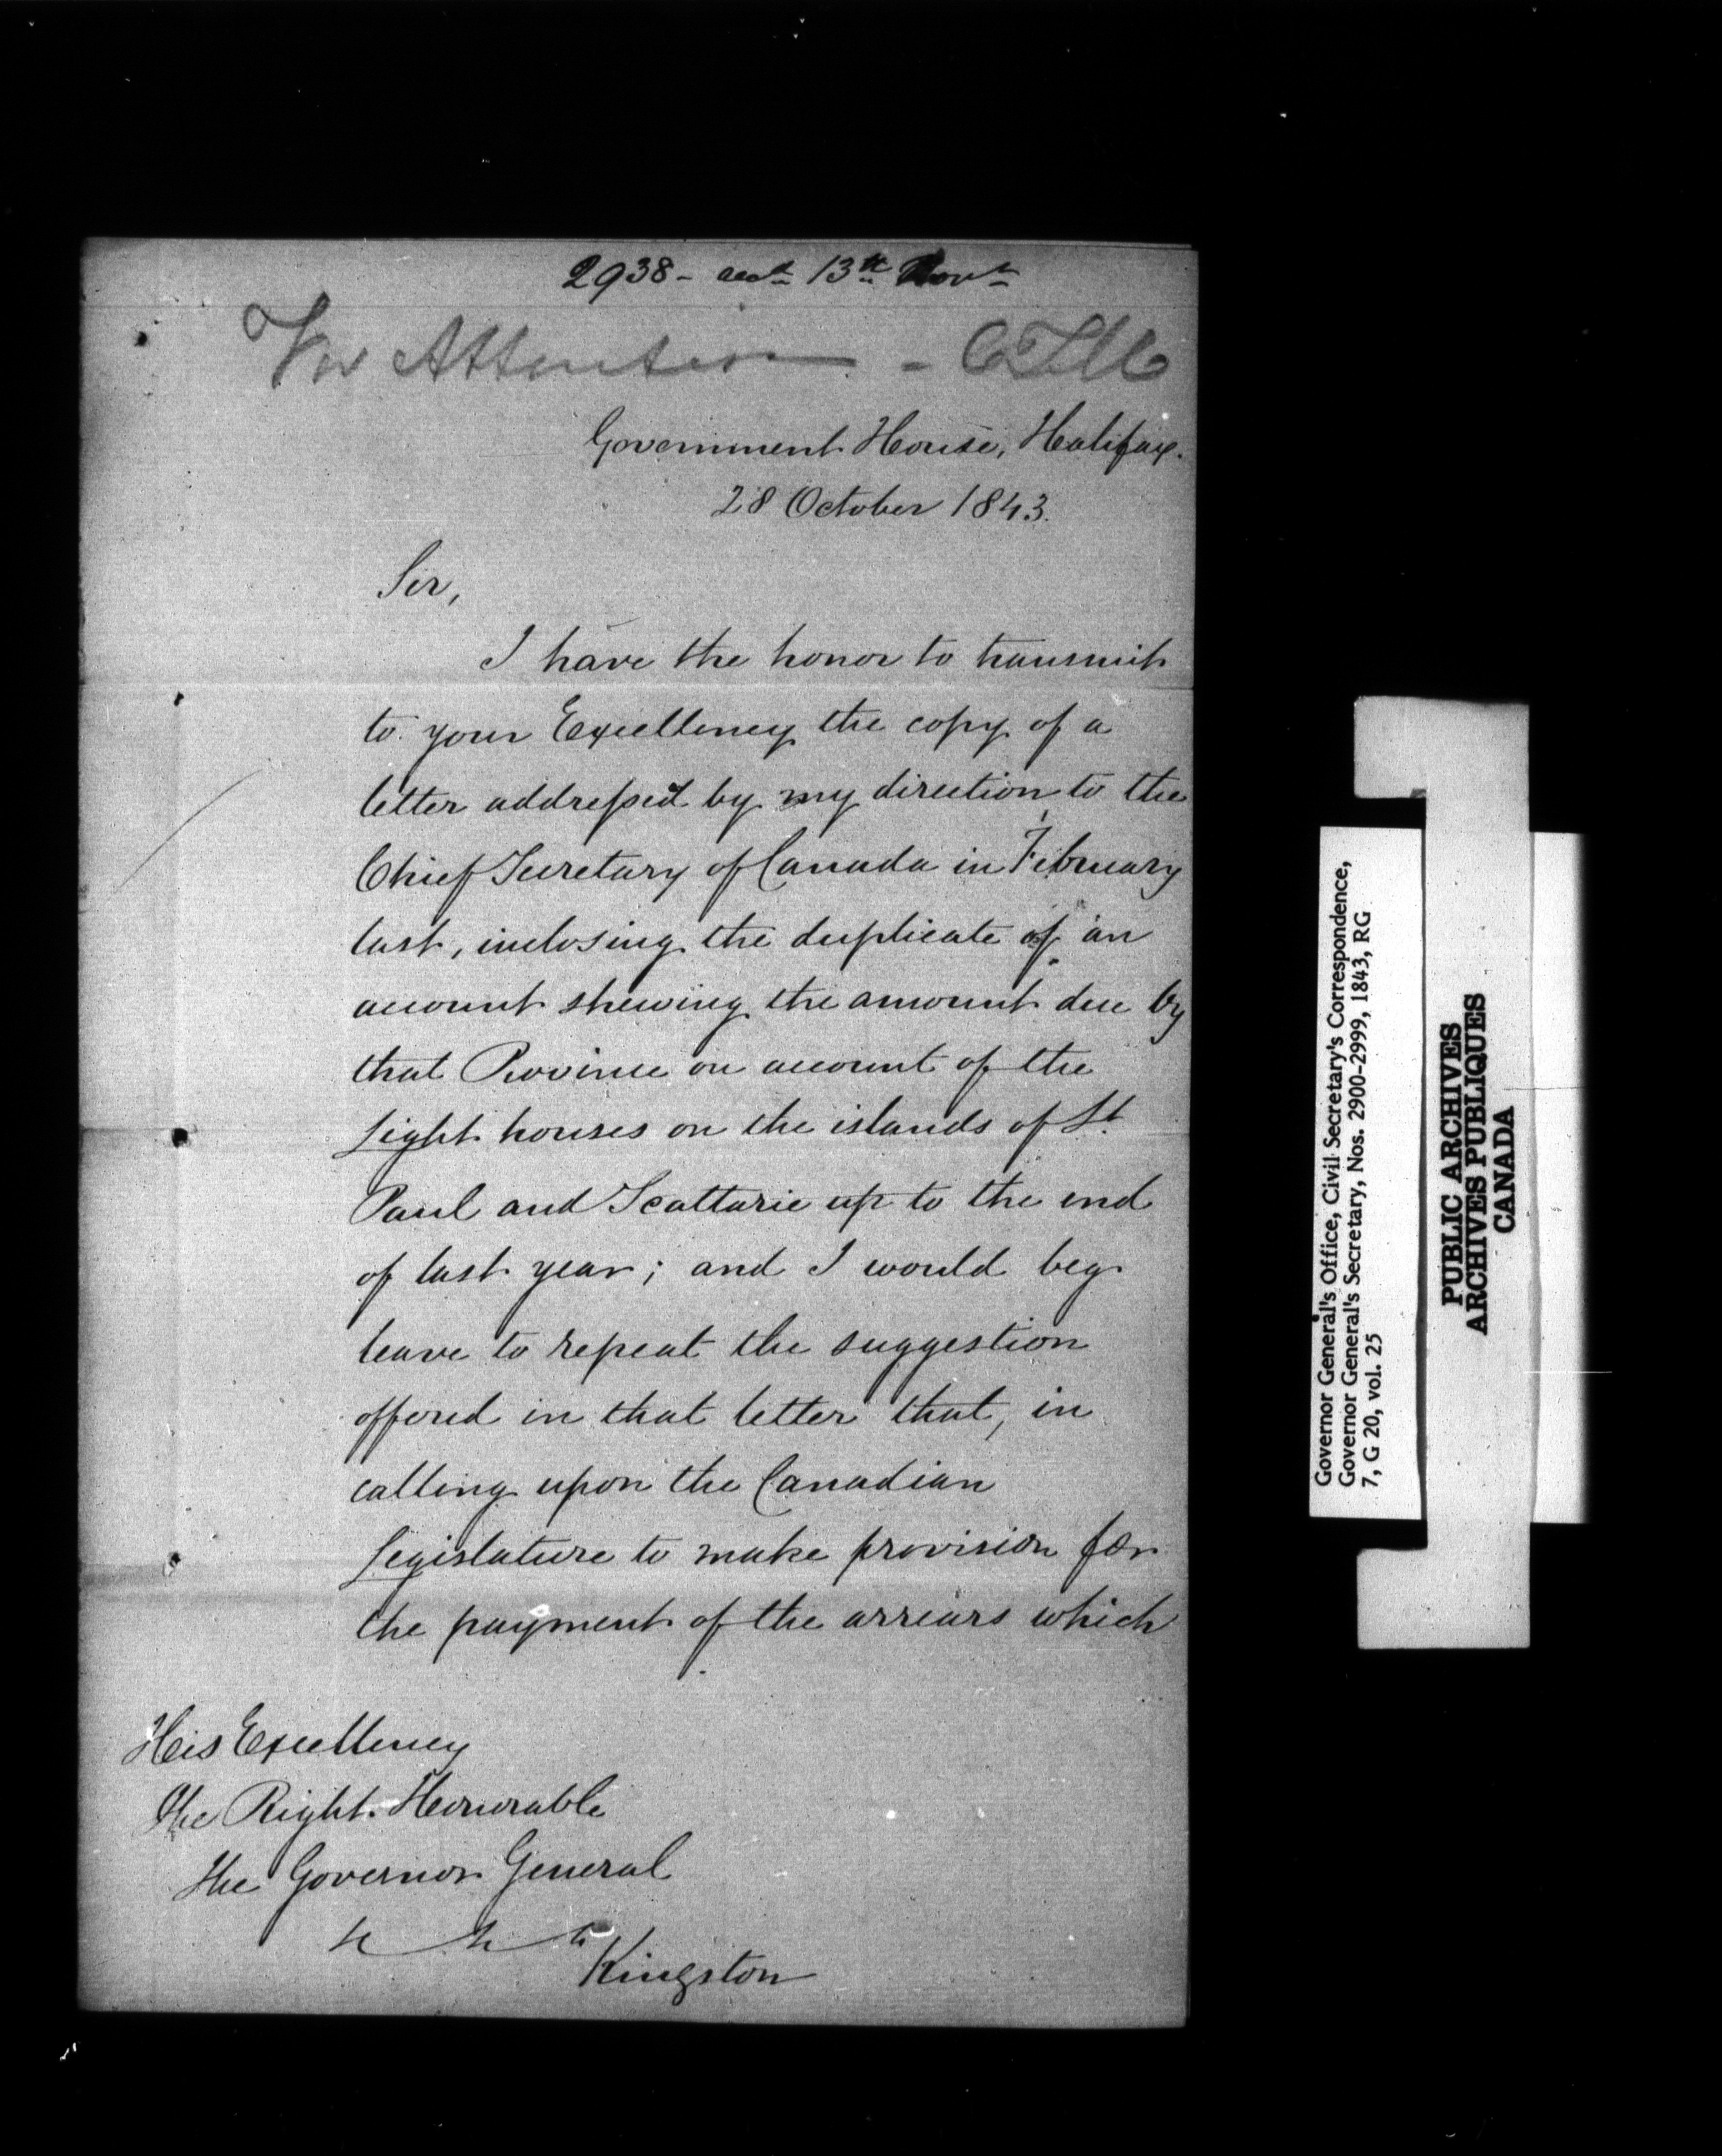 2938 - 13th Novr
For Attention - CTM
Government House, Halifax.
28 October 1843.
Sir,
I have the honor to transmit
to your Excellency the copy of a
letter addressed by my direction to the
Chief Secretary of Canada in February
last, inclosing the duplicate of an
account shewing the amount due by
that Province on account of the
Light houses on the islands of St.
Paul and Scattarie up to the end
of last year; and I would beg
leave to repeat the suggestion
offered in that letter that, in
calling upon the Canadian
Legislature to make provision for
the payment of the arrears which
His Excellency
the Right Honorable
the Governor General
Kingston
Governor General's Office, Civil Secretary's Correspondence,
Governor General's Secretary, Nos. 2900-2999, 1843, RG
7, G 20, vol. 25
PUBLIC ARCHIVES
ARCHIVES PUBLIQUES
CANADA